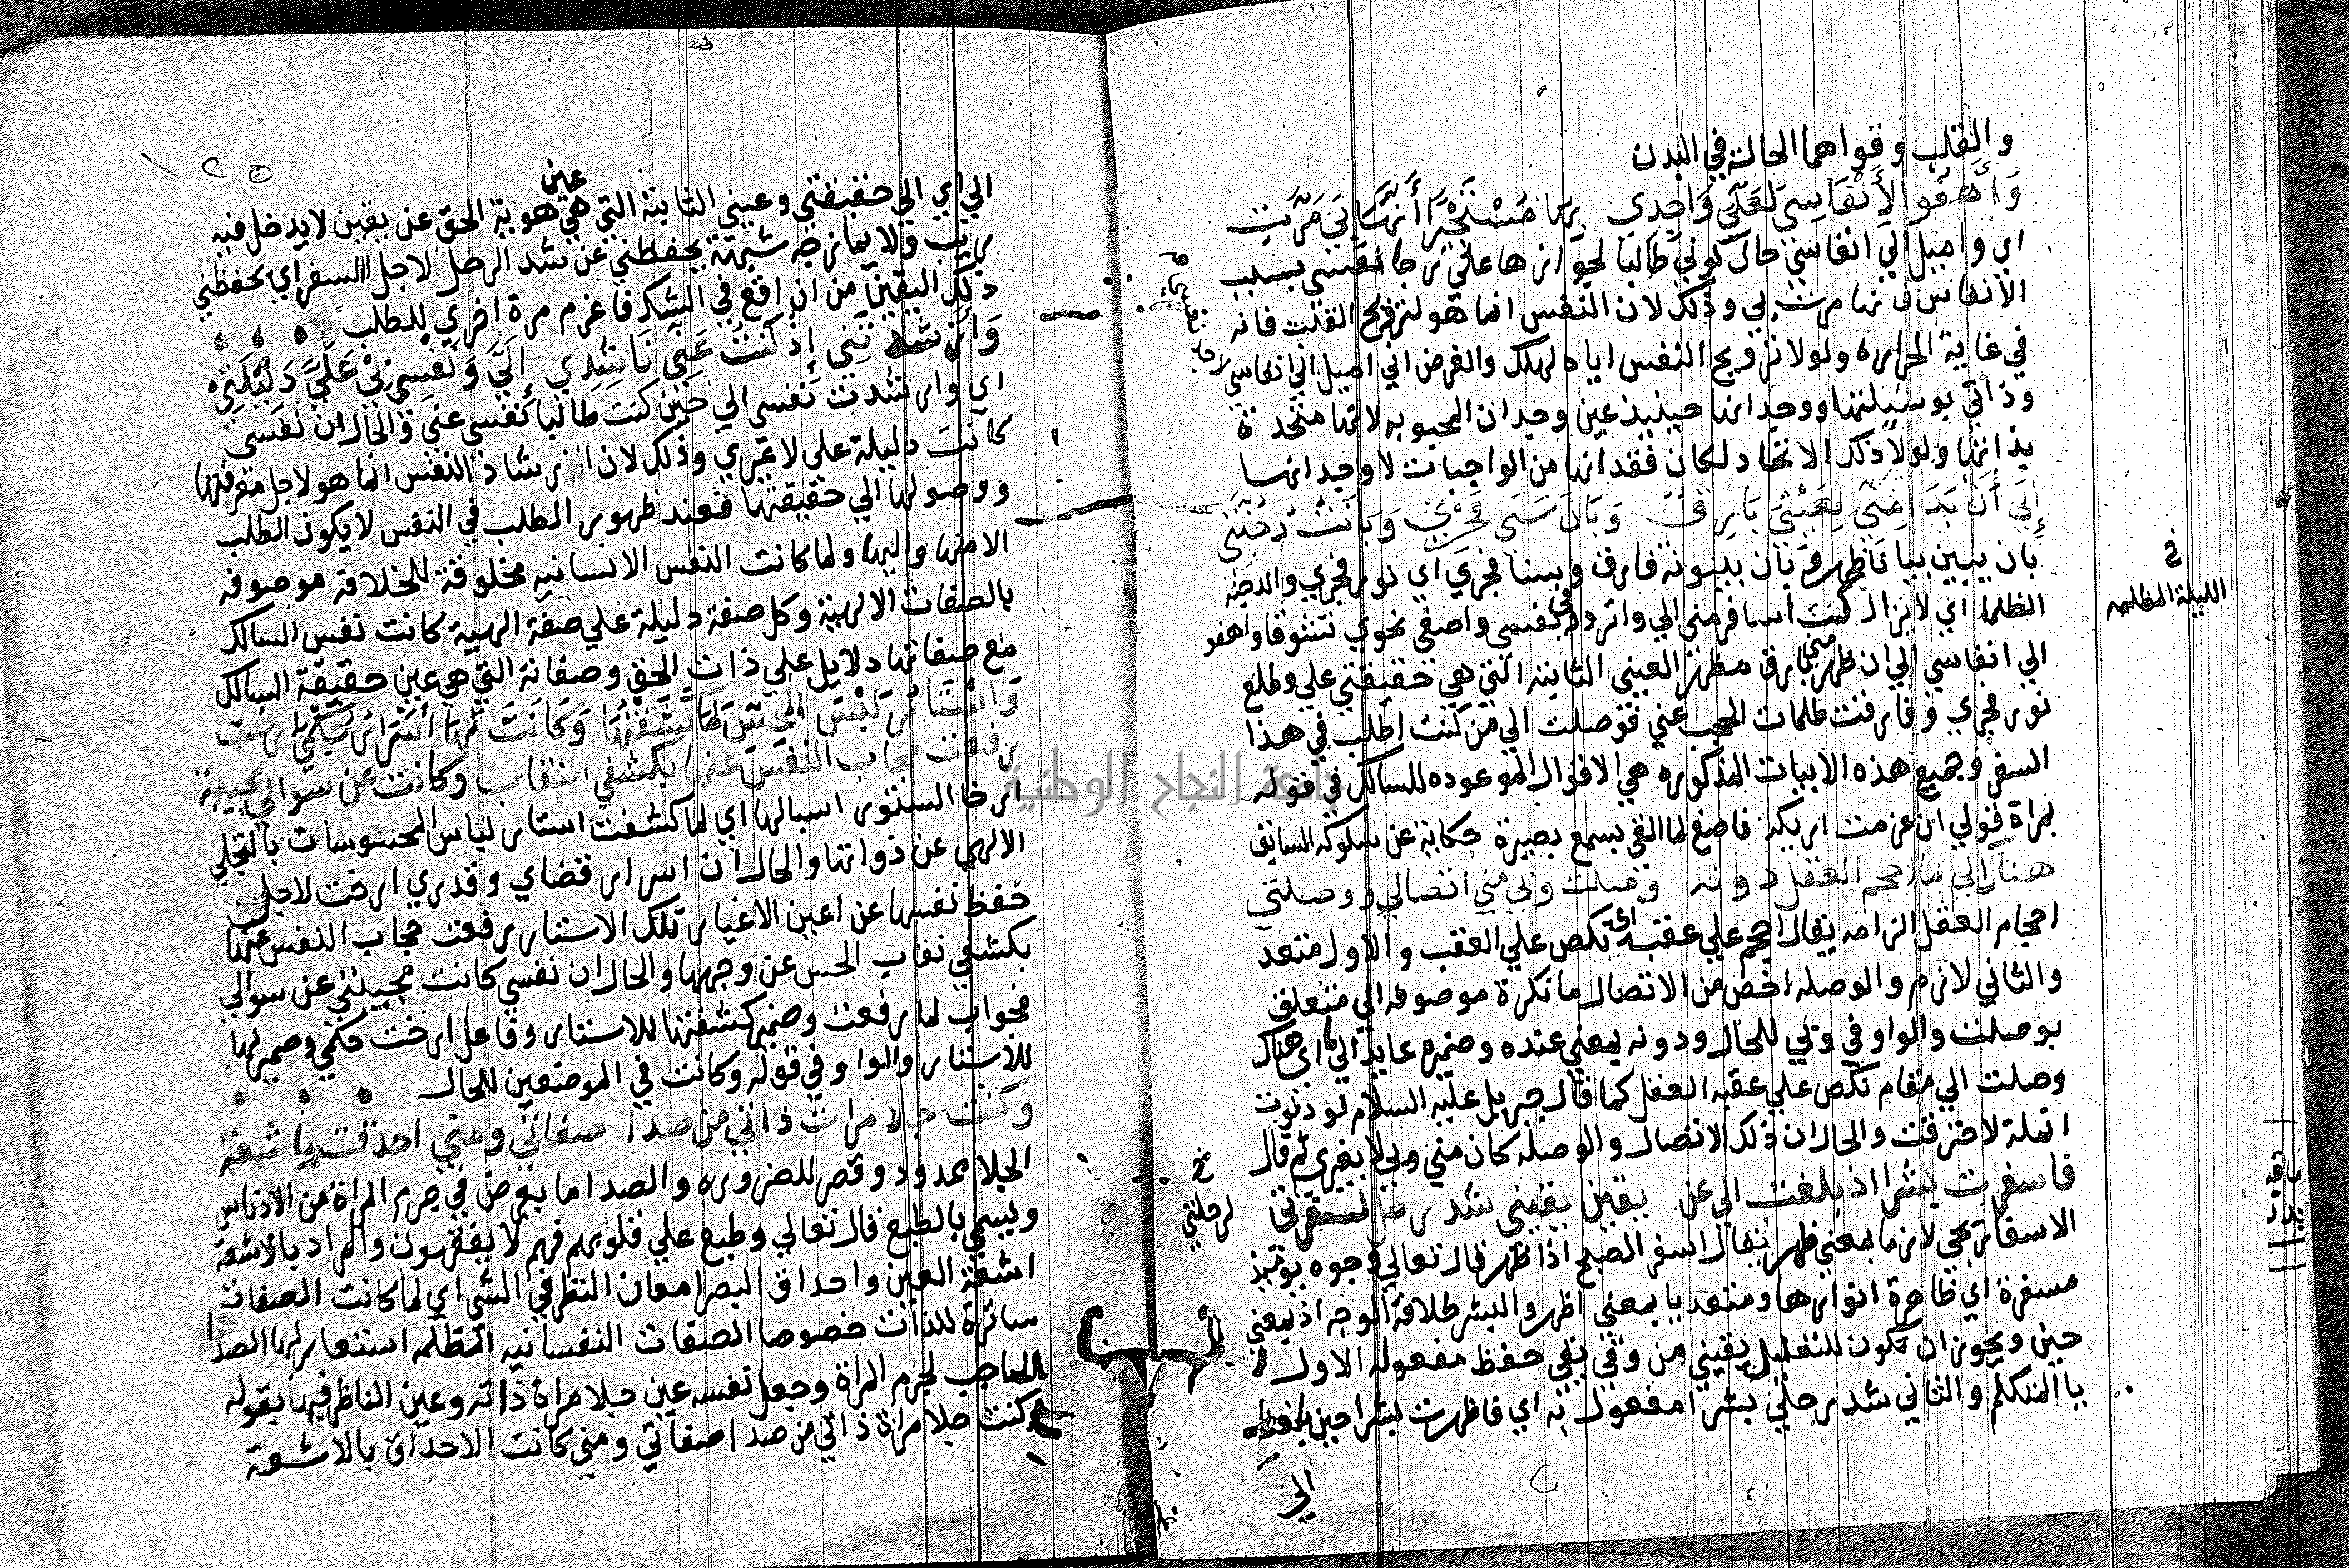 والقلب وقواهما الحالة في البدن
وَأَهفُو لِأَنْفَاسِي لَعَلِّي وَاجِدِي بِهَا مُسْتَجِيزًا أَنَّهَا بِيَ مَرَّتِ
اي واميل الي انفاسي حال كوني طالبا لجوازها علي ترجا نفسي بسبب
الانفاس انها مرت بي وذلك لان النفس انما هو لترويح القلب فانه
في غاية الحراره ولولا ترويح النفس اياه لهلك والغرض اني اميل الي انفاسي
وذاتي بوسيلتها ووجدانها حينيذ عين وجدان المحبوبه لانها متحدة
بذاتها ولولا ذلك الاتحاد لكان فقدانها من الواجبات لا وجدانها
إِلَى أَن بَدَا مِنِّي لِعَيْنِي بَارِقٌ وَبَانَ سَنَى فَجْرِي وَبَانَتْ دُجُنَّتِي
بان يبين بيانا ظهر وبان بينونة فارق وسنا فجري اي نور فجري والدجنه
الظلما اي لا ازال كنت اسافر مني الي واتردد في نفسي واصغي نحوي تشوقا واهفو
الي انفاسي الي ان ظهر مني بارق مظهر العيني الثابته التي هي حقيقتي علي وطلع
نور فجري وفارقت ظلمات الحجب عني فوصلت الي من كنت اطلب في هذا
السفر وجميع هذه الابيات المذكوره هي الاقوال الموعوده للسالك في قوله
بمراة قولي ان عزمت اريكه فاصغ لما القي بسمع بصيرة حكاية عن سلوكه السابق
هناك الي ما احجم العقل دونه وصلت وبي مني اتصالي ووصلتي
احجام العقل الزامه يقال احجم علي عقبه اي نكص علي العقب والاول متعد
والثاني لازم والوصله اخص من الاتصال ما نكرة موصوفه الي متعلق
بوصلت والواو في وبي للحال ودونه بمعني عنده وضميره عايد الي ما اي هناك
وصلت الي مقام نكص علي عقبه العقل كما قال جبريل عليه السلام لو دنوت
انملة لاحترقت والحال ان ذلك الاتصال والوصله كان مني وبي لا بغيري ثم قال
فاسفرت بشرا اذ بلغت الي عن يقين يقيني شد رحل لسفرتي
الاسفار يجي لازما بمعني ظهر يقال اسفر الصبح اذا ظهر قال تعالي وجوه يوميذ
مسفرة اي ظاهرة انوارها ومتعديا بمعني اظهر والبشر طلاقة الوجه اذ بمعني
حين ويجوز ان تكون للتعليل يقيني من وقي يقي حفظ مفعوله الاول
يا المتكلم والثاني شد رحلي بشرا مفعول به اي فاظهرت بشرا حين
الي
في الليلة المظلمه
لرحلتي
الي اي الي حقيقتي وعيني الثابته التي هي عين هوية الحق عن يقين لا يدخل فيه
ريب ولا يمازجه شبهة يحفظني عن شد الرحل لاجل السفر اي يحفظني
ذلك اليقين من ان اقع في الشك فاعزم مرة اخري للطلب
وَأَرْشَدْتَنِي إِذْ كُنْتُ عَنِّي نَاشِدِي إِلَيَّ وَنَفْسِي بِي عَلَيَّ دَلِيلَتِي
اي وارشدت نفسي الي حين كنت طالبا نفسي عني والحال ان نفسي
كانت دليلة علي لا غيري وذلك لان ارشاد النفس انما هو لاجل معرفتها
ووصولها الي حقيقتها فعند ظهور المطلب في النفس لا يكون الطلب
الا منها واليها ولما كانت النفس الانسانيه مخلوقة للخلافة موصوفه
بالصفات الالهية وكل صفة دليلة علي صفة الهية كانت نفس السالك
مع صفاتها دلايل علي ذات الحق وصفاته التي هي عين حقيقة السالك
وَأَسْتَارُ لَبْسِ الحِسِّ لَمَّا كَشَفْتُهَا وَكَانَتْ لَهَا أَسْرَارُ حُكْمِيَ أَرْخَتِ
رفعت حجاب النفس عنها بكشفي النقاب وكانت عن سوالي مجيبة
ارخا الستور اسبالها اي لما كشفت استار لباس المحسوسات بالتجلي
الالهي عن ذواتها والحال ان اسرار قضاي وقدري ارخت لاجل
حفظ نفسها عن اعين الاغيار تلك الاستار رفعت حجاب النفس عنها
بكشفي نقاب الحس عن وجهها والحال ان نفسي كانت مجيبتي عن سوالي
فجواب لما رفعت وضمير كشفتها للاستار وفاعل ارخت حكمي وضمير لها
للاستار والواو في قوله وكانت في الموضعين للحال
وكنت جلا مرات ذاتي من صدا صفاتي ومني احدقت باشعة
الجلا ممدود وقصر للضروره والصدا ما يعرض في جرم المراة من الادناس
ويسمي بالطبع قال تعالي وطبع علي قلوبهم فهم لا يفقهون والمراد بالاشعة
اشعة العين واحداق البصر امعان النظر في الشي اي لما كانت الصفات
ساترة للذات خصوصا الصفات النفسانيه المظلمه استعار لها الصدا
الحاجب لجرم المراة وجعل نفسه عين جلا مراة ذاته وعين الناظر فيها بقوله
وكنت جلا مراة ذاتي من صدا صفاتي ومني كانت الاحداق بالاشعة
جامعة النجاح الوطنية